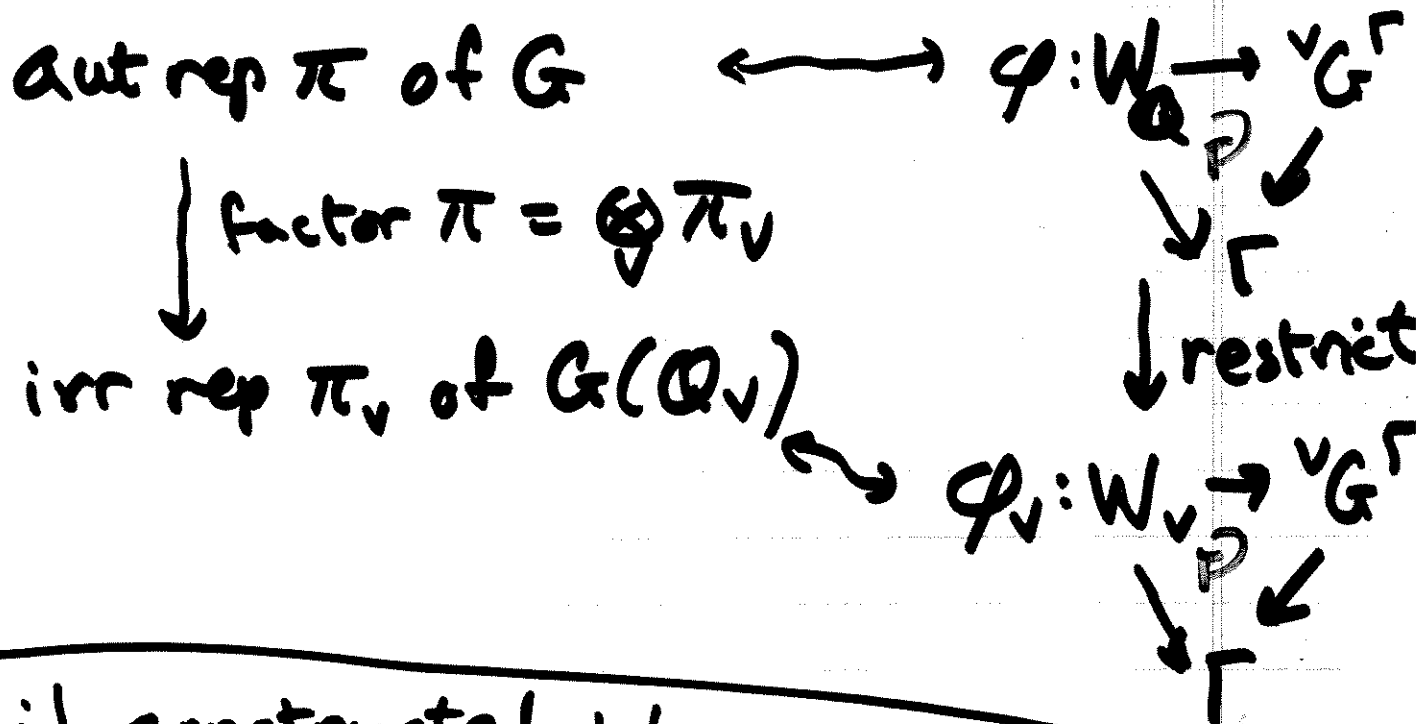 aut rep π of G ⟷ φ: W_Q → ^∨G^Γ
P
Γ
factor π = ⊗_v π_v
restrict
irr rep π_v of G(Q_v)
φ_v: W_v → ^∨G^Γ
P
Γ